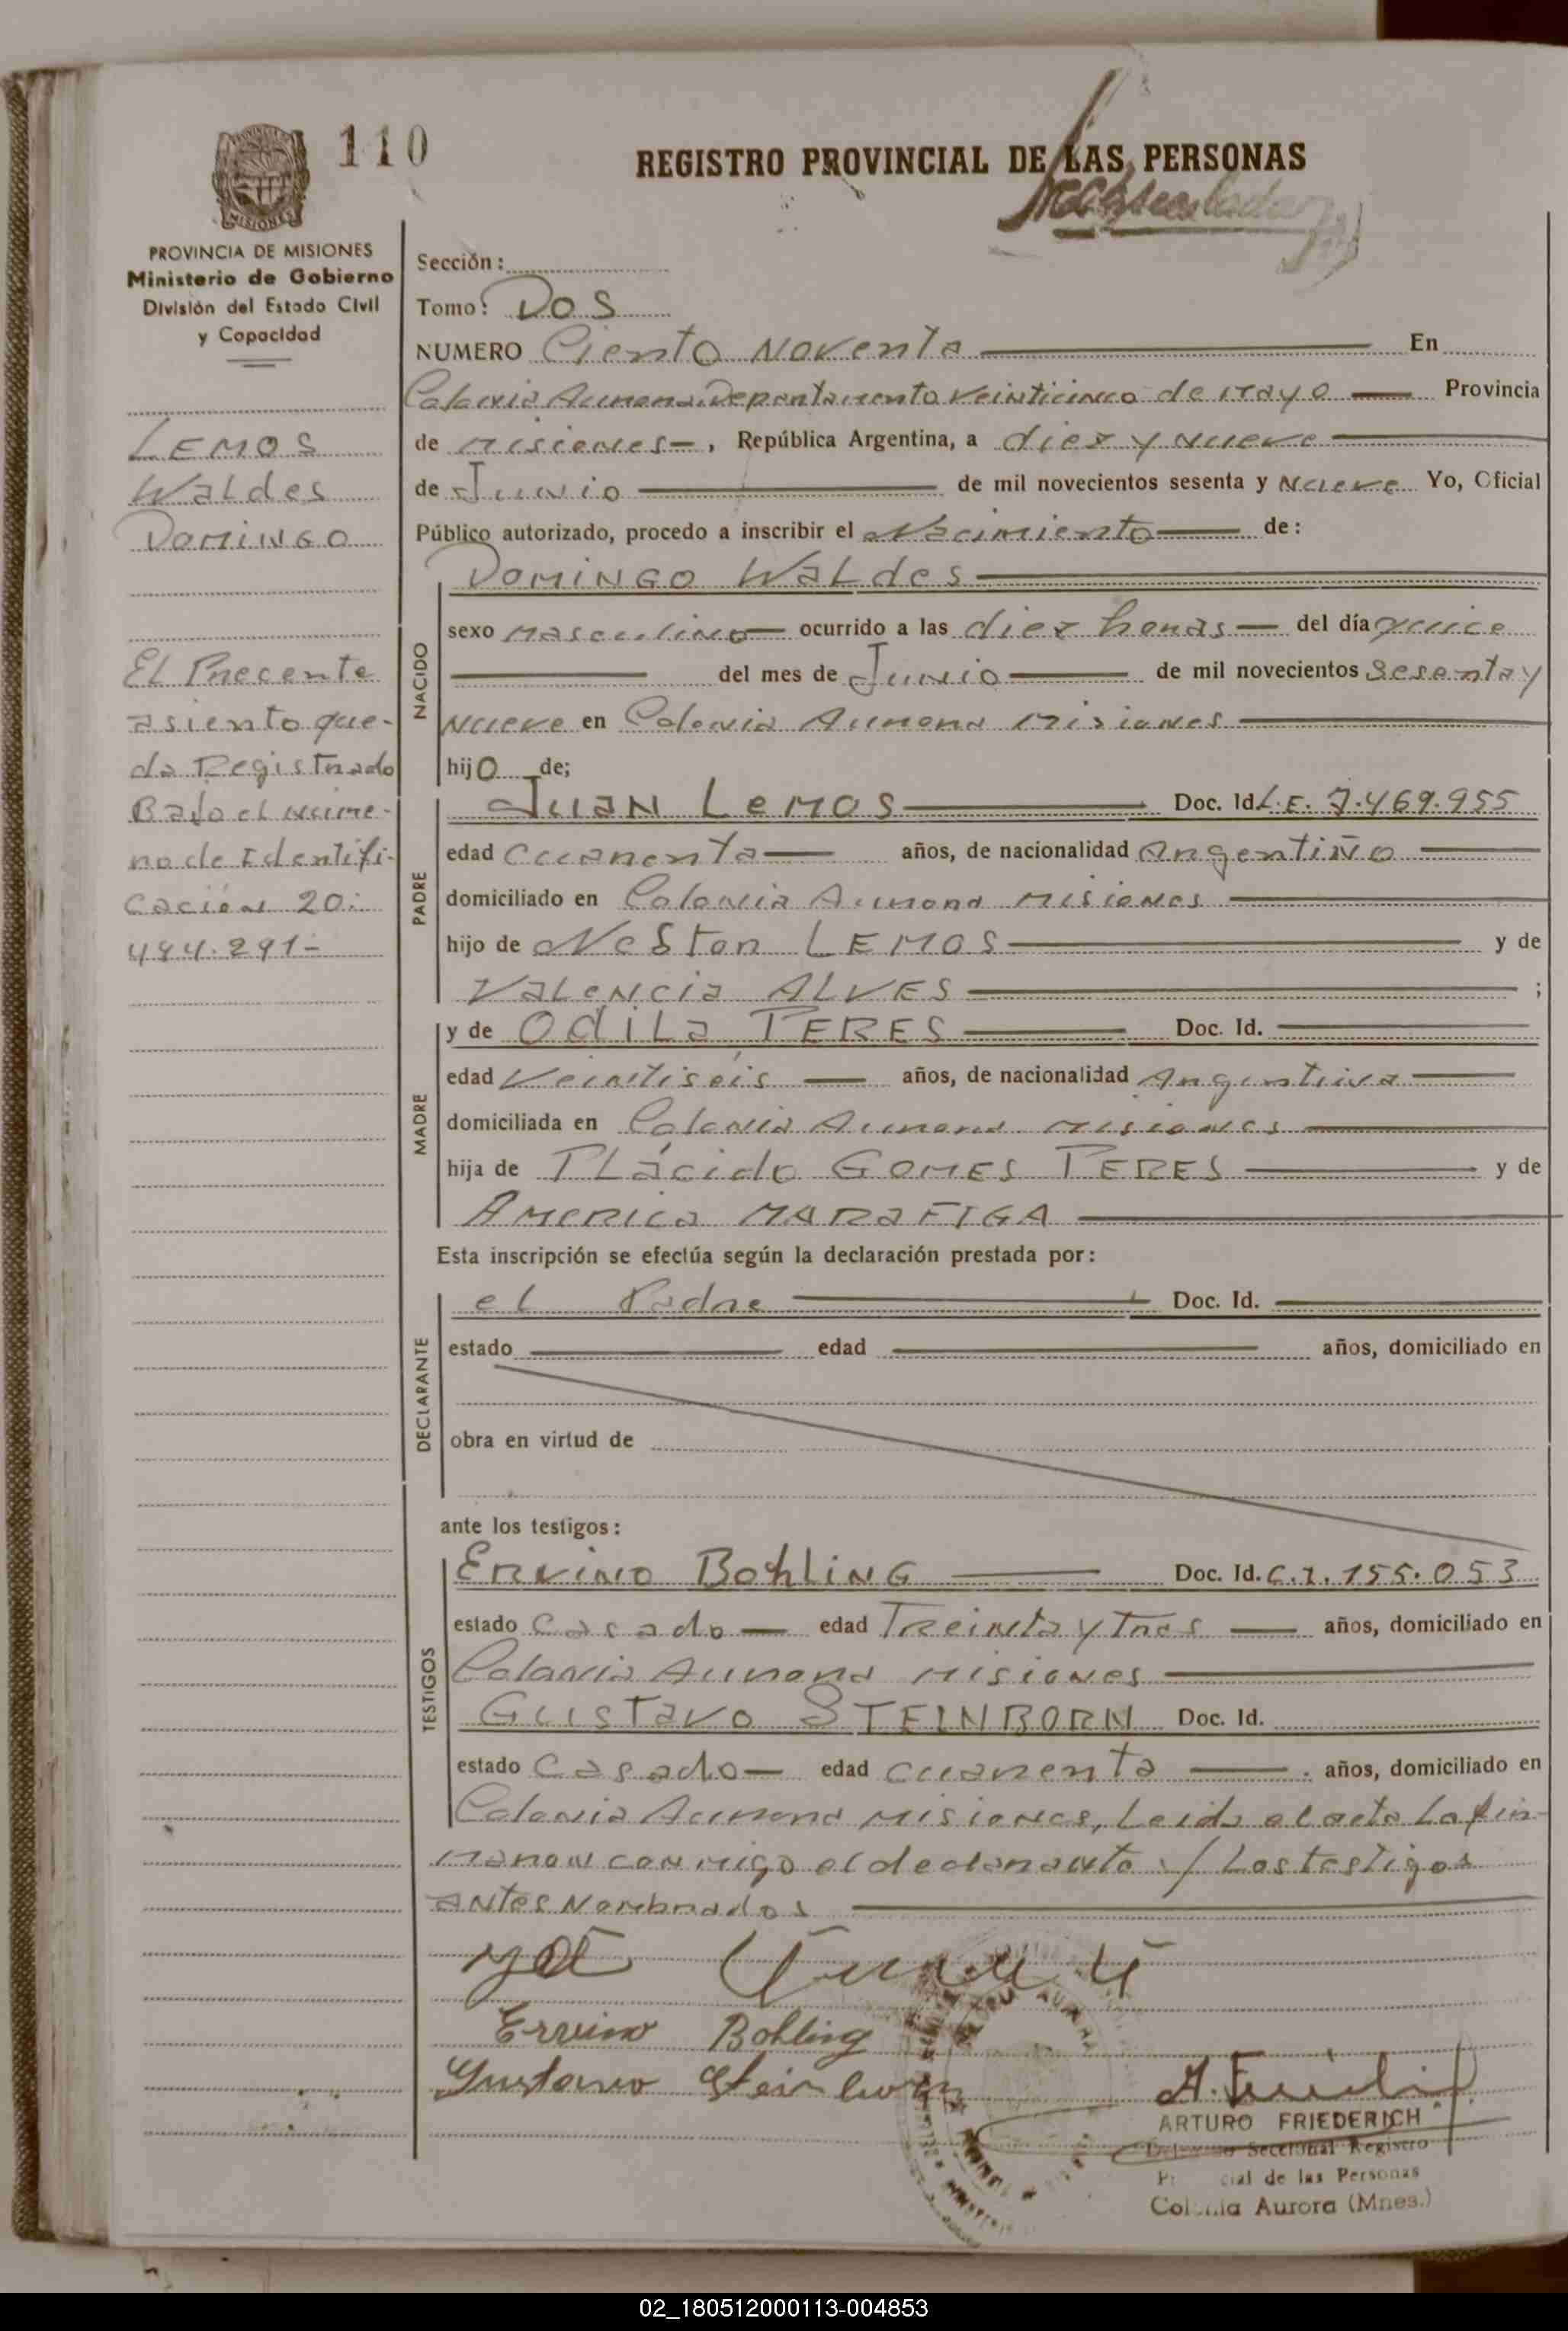 110
REGISTRO PROVINCIAL DE LAS PERSONAS
MISIONES
PROVINCIA DE MISIONES
Ministerio de Gobierno
División del Estado Civil
y Capacidad
LEMOS
Waldes
DOMINGO
El Precente
asiento que-
da Registrado
Bajo el núme-
ro de Identifi-
cación 20.
494.291-
Sección:
Tomo: DOS
NUMERO Ciento Noventa En
Colonia Aurora Departamento Veinticinco de Mayo Provincia
de Misiones, República Argentina, a diez y nueve
de Junio de mil novecientos sesenta y Nueve Yo, Oficial
Público autorizado, procedo a inscribir el Nacimiento de:
NACIDO
DOMINGO Waldes
sexo Masculino ocurrido a las diez horas del día quice
del mes de Junio de mil novecientos sesenta y
Nueve en Colonia Aurora Misiones
hijo de;
PADRE
Juan LEMOS Doc. Id. L.E. 7.469.955
edad cuarenta años, de nacionalidad Argentiño
domiciliado en Colonia Aurora Misiones
hijo de Nestor LEMOS y de
Valencia ALVES ;
MADRE
y de Odila PERES Doc. Id.
edad Veintiséis años, de nacionalidad Argentina
domiciliada en Colonia Aurora Misiones
hija de Plácido GOMES PERES y de
America MARAFIGA
Esta inscripción se efectúa según la declaración prestada por:
DECLARANTE
el Padre Doc. Id.
estado edad años, domiciliado en
obra en virtud de
ante los testigos:
TESTIGOS
Ervino BohLING Doc. Id. C.I. 155.053
estado Casado edad Treinta y Tres años, domiciliado en
Colonia Aurora Misiones
Gustavo STEINBORN Doc. Id.
estado Casado edad cuarenta años, domiciliado en
Colonia Aurora Misiones, Leida el acta La fir-
maron conmigo el declarante y Los testigos
antes Nombrados
Ervino Bohling
Gustavo Steinborn
ARTURO FRIEDERICH
Seccional Registro
de las Personas
Colonia Aurora (Mnes.)
02_180512000113-004853